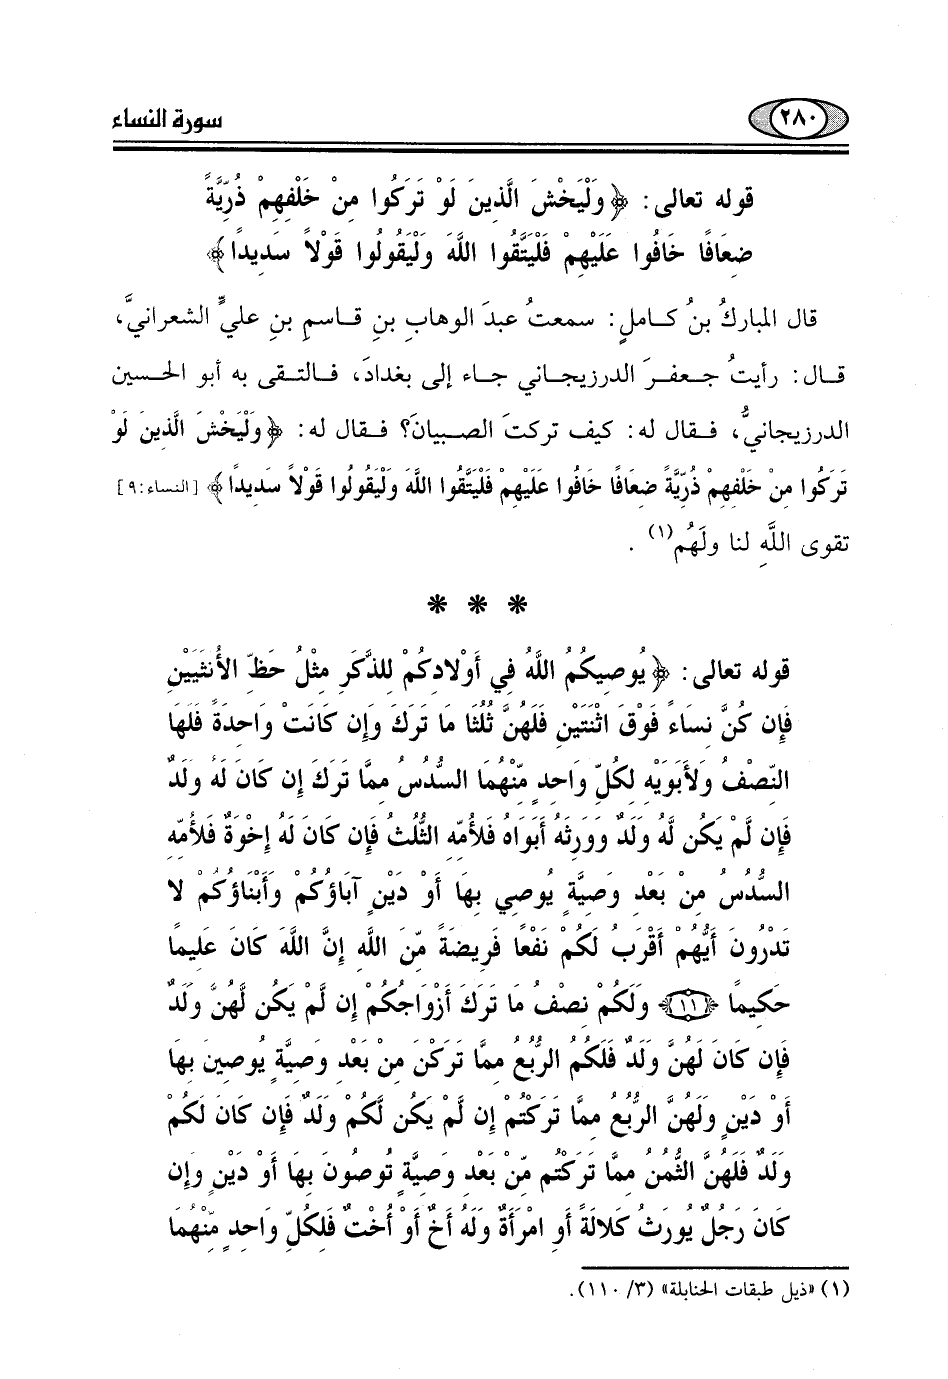 ٢٨٠ سورة النساء
قوله تعالى: ﴿ وَلْيَخْشَ الَّذِينَ لَوْ تَرَكُوا مِنْ خَلْفِهِمْ ذُرِّيَّةً
ضِعَافًا خَافُوا عَلَيْهِمْ فَلْيَتَّقُوا اللَّهَ وَلْيَقُولُوا قَوْلاً سَدِيدًا ﴾
قال المباركُ بنُ كاملٍ: سمعتُ عبدَ الوهاب بنِ قاسمِ بنِ عليٍّ الشعرانيَّ،
قال: رأيتُ جعفرَ الدرزيجاني جاء إلى بغدادَ، فالتقى به أبو الحسين
الدرزيجانيُّ، فقال له: كيف تركتَ الصبيانَ؟ فقال له: ﴿ وَلْيَخْشَ الَّذِينَ لَوْ
تَرَكُوا مِنْ خَلْفِهِمْ ذُرِّيَّةً ضِعَافًا خَافُوا عَلَيْهِمْ فَلْيَتَّقُوا اللَّهَ وَلْيَقُولُوا قَوْلاً سَدِيدًا ﴾ [النساء: ٩]
تقوى اللَّهِ لنا ولَهُم(١) .
* * *
قوله تعالى: ﴿ يُوصِيكُمُ اللَّهُ فِي أَوْلادِكُمْ لِلذَّكَرِ مِثْلُ حَظِّ الأُنثَيَيْنِ
فَإِن كُنَّ نِسَاءً فَوْقَ اثْنَتَيْنِ فَلَهُنَّ ثُلُثَا مَا تَرَكَ وَإِن كَانَتْ وَاحِدَةً فَلَهَا
النِّصْفُ وَلأَبَوَيْهِ لِكُلِّ وَاحِدٍ مِّنْهُمَا السُّدُسُ مِمَّا تَرَكَ إِن كَانَ لَهُ وَلَدٌ
فَإِن لَّمْ يَكُن لَّهُ وَلَدٌ وَوَرِثَهُ أَبَوَاهُ فَلأُمِّهِ الثُّلُثُ فَإِن كَانَ لَهُ إِخْوَةٌ فَلأُمِّهِ
السُّدُسُ مِنْ بَعْدِ وَصِيَّةٍ يُوصِي بِهَا أَوْ دَيْنٍ آبَاؤُكُمْ وَأَبْنَاؤُكُمْ لا
تَدْرُونَ أَيُّهُمْ أَقْرَبُ لَكُمْ نَفْعًا فَرِيضَةً مِّنَ اللَّهِ إِنَّ اللَّهَ كَانَ عَلِيمًا
حَكِيمًا ﴿١١﴾ وَلَكُمْ نِصْفُ مَا تَرَكَ أَزْوَاجُكُمْ إِن لَّمْ يَكُن لَّهُنَّ وَلَدٌ
فَإِن كَانَ لَهُنَّ وَلَدٌ فَلَكُمُ الرُّبُعُ مِمَّا تَرَكْنَ مِنْ بَعْدِ وَصِيَّةٍ يُوصِينَ بِهَا
أَوْ دَيْنٍ وَلَهُنَّ الرُّبُعُ مِمَّا تَرَكْتُمْ إِن لَّمْ يَكُن لَّكُمْ وَلَدٌ فَإِن كَانَ لَكُمْ
وَلَدٌ فَلَهُنَّ الثُّمُنُ مِمَّا تَرَكْتُم مِّنْ بَعْدِ وَصِيَّةٍ تُوصُونَ بِهَا أَوْ دَيْنٍ وَإِن
كَانَ رَجُلٌ يُورَثُ كَلالَةً أَوِ امْرَأَةٌ وَلَهُ أَخٌ أَوْ أُخْتٌ فَلِكُلِّ وَاحِدٍ مِّنْهُمَا
(١) «ذيل طبقات الحنابلة» (٣/ ١١٠).